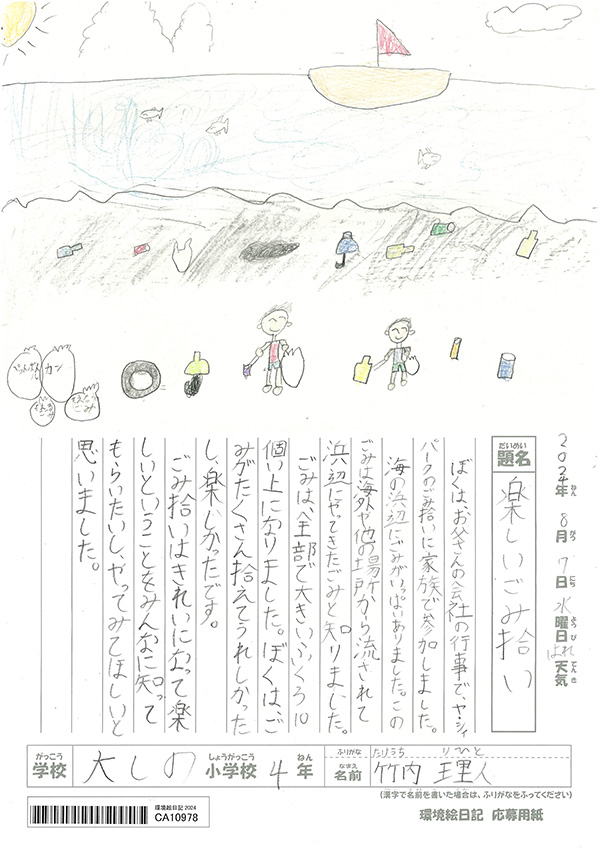 ぺっとぼとる
カン
もえるごみ
2024年 8月 7日 水曜日
はれ 天気
ねん がつ にち ようび てんき
だいめい
題名
楽しいごみ拾い
ぼくは、お父さんの会社の行事で、ヤ・シィ
パークのごみ拾いに家族で参加しました。
海の浜辺にごみがいっぱいありました。この
ごみは海外や他の場所から流されて
浜辺にやってきたごみと知りました。
ごみは、全部で大きいふくろ10
個い上になりました。ぼくは、ご
みがたくさん拾えてうれしかった
し、楽しかったです。
ごみ拾いはきれいになって楽
しいということをみんなに知って
もらいたいし、やってみてほしいと
思いました。
がっこう しょうがっこう ねん
学校 大しの 小学校 4年
ふりがな たけうち りひと
なまえ
名前 竹内 理人
(漢字で名前を書いた場合は、ふりがなをふってください)
環境絵日記 2024
CA10978
環境絵日記 応募用紙